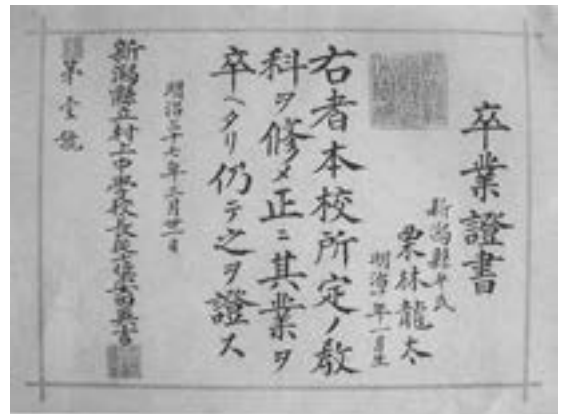 卒業證書
新潟縣平民
栗林龍太
明治 年一月生
右者本校所定ノ教
科ヲ修メ正ニ其業ヲ
卒ヘタリ仍テ之ヲ證ス
明治三十七年三月廿一日
新潟縣立村上中學校長
第壹號